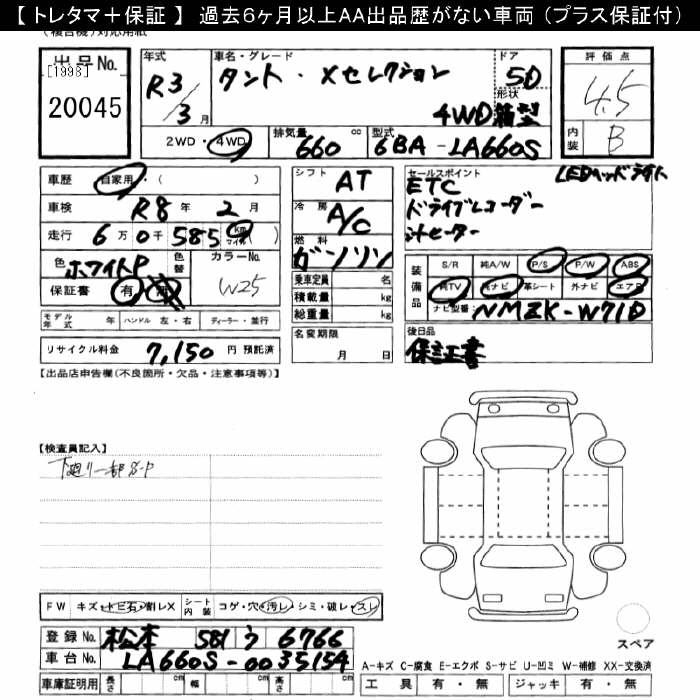 【 トレタマ＋保証 】 過去６ヶ月以上AA出品歴がない車両（プラス保証付）
（複合機）対応用紙
出品No.
[1998]
20045
年式
R3/3月
車名・グレード
タント・Xセレクション
ドア
5D
形状
4WD箱型
評価点
4.5
内装
B
2WD・4WD
排気量
660 cc
型式
6BA-LA660S
車歴 自家用・（ ）
車検 R8年 2月
走行 6万0千585 km マイル（ ）
色 ホワイトP
色替
カラーNo.
W25
保証書 有・無
モデル年式 年 ハンドル 左・右 ディーラー・並行
リサイクル料金 7,150 円 預託済
シフト AT
冷房 A/C
燃料 ガソリン
乗車定員 名
積載量 kg
総重量 kg
名変期限
月 日
セールスポイント
LEDヘッドライト
ETC
ドライブレコーダー
シートヒーター
装備品
S/R 純A/W P/S P/W ABS
純TV 純ナビ 革シート 外ナビ エアB
ナビ型番： NMZK-W71D
後日品
保証書
【出品店申告欄(不良箇所・欠品・注意事項等)】
【検査員記入】
下廻り一部S・P
FW キズ・トビ石・割レX シート内装 コゲ・穴・汚レ・シミ・破レ・スレ
登録No. 松本 581 う 6766
車台No. LA660S-0035154
車庫証明用 長さ cm 幅 cm 高さ cm
スペア
A-キズ C-腐食 E-エクボ S-サビ U-凹ミ W-補修 XX-交換済
工具 有・無 ジャッキ 有・無